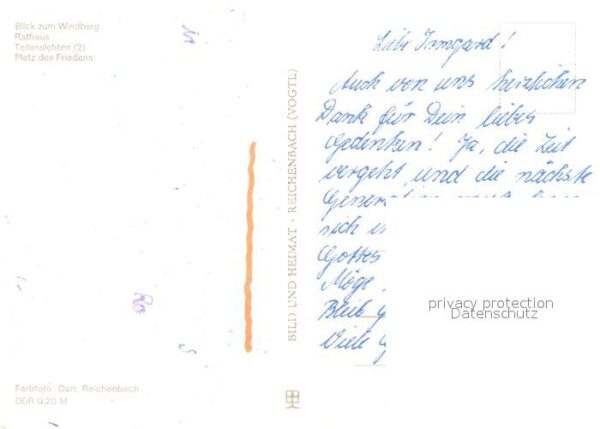 Blick zum Windberg
Rathaus
Teilansichten (2)
Platz des Friedens
Farbfoto: Darr, Reichenbach
DDR 0,20 M
BILD UND HEIMAT · REICHENBACH (VOGTL)
Liebe Irmgard!
Auch von uns herzlichen
Dank für Dein liebes
Gedenken! Ja, die Zeit
vergeht und die nächste
sich
Gottes
Möge
Bleib
Viele
privacy protection
Datenschutz